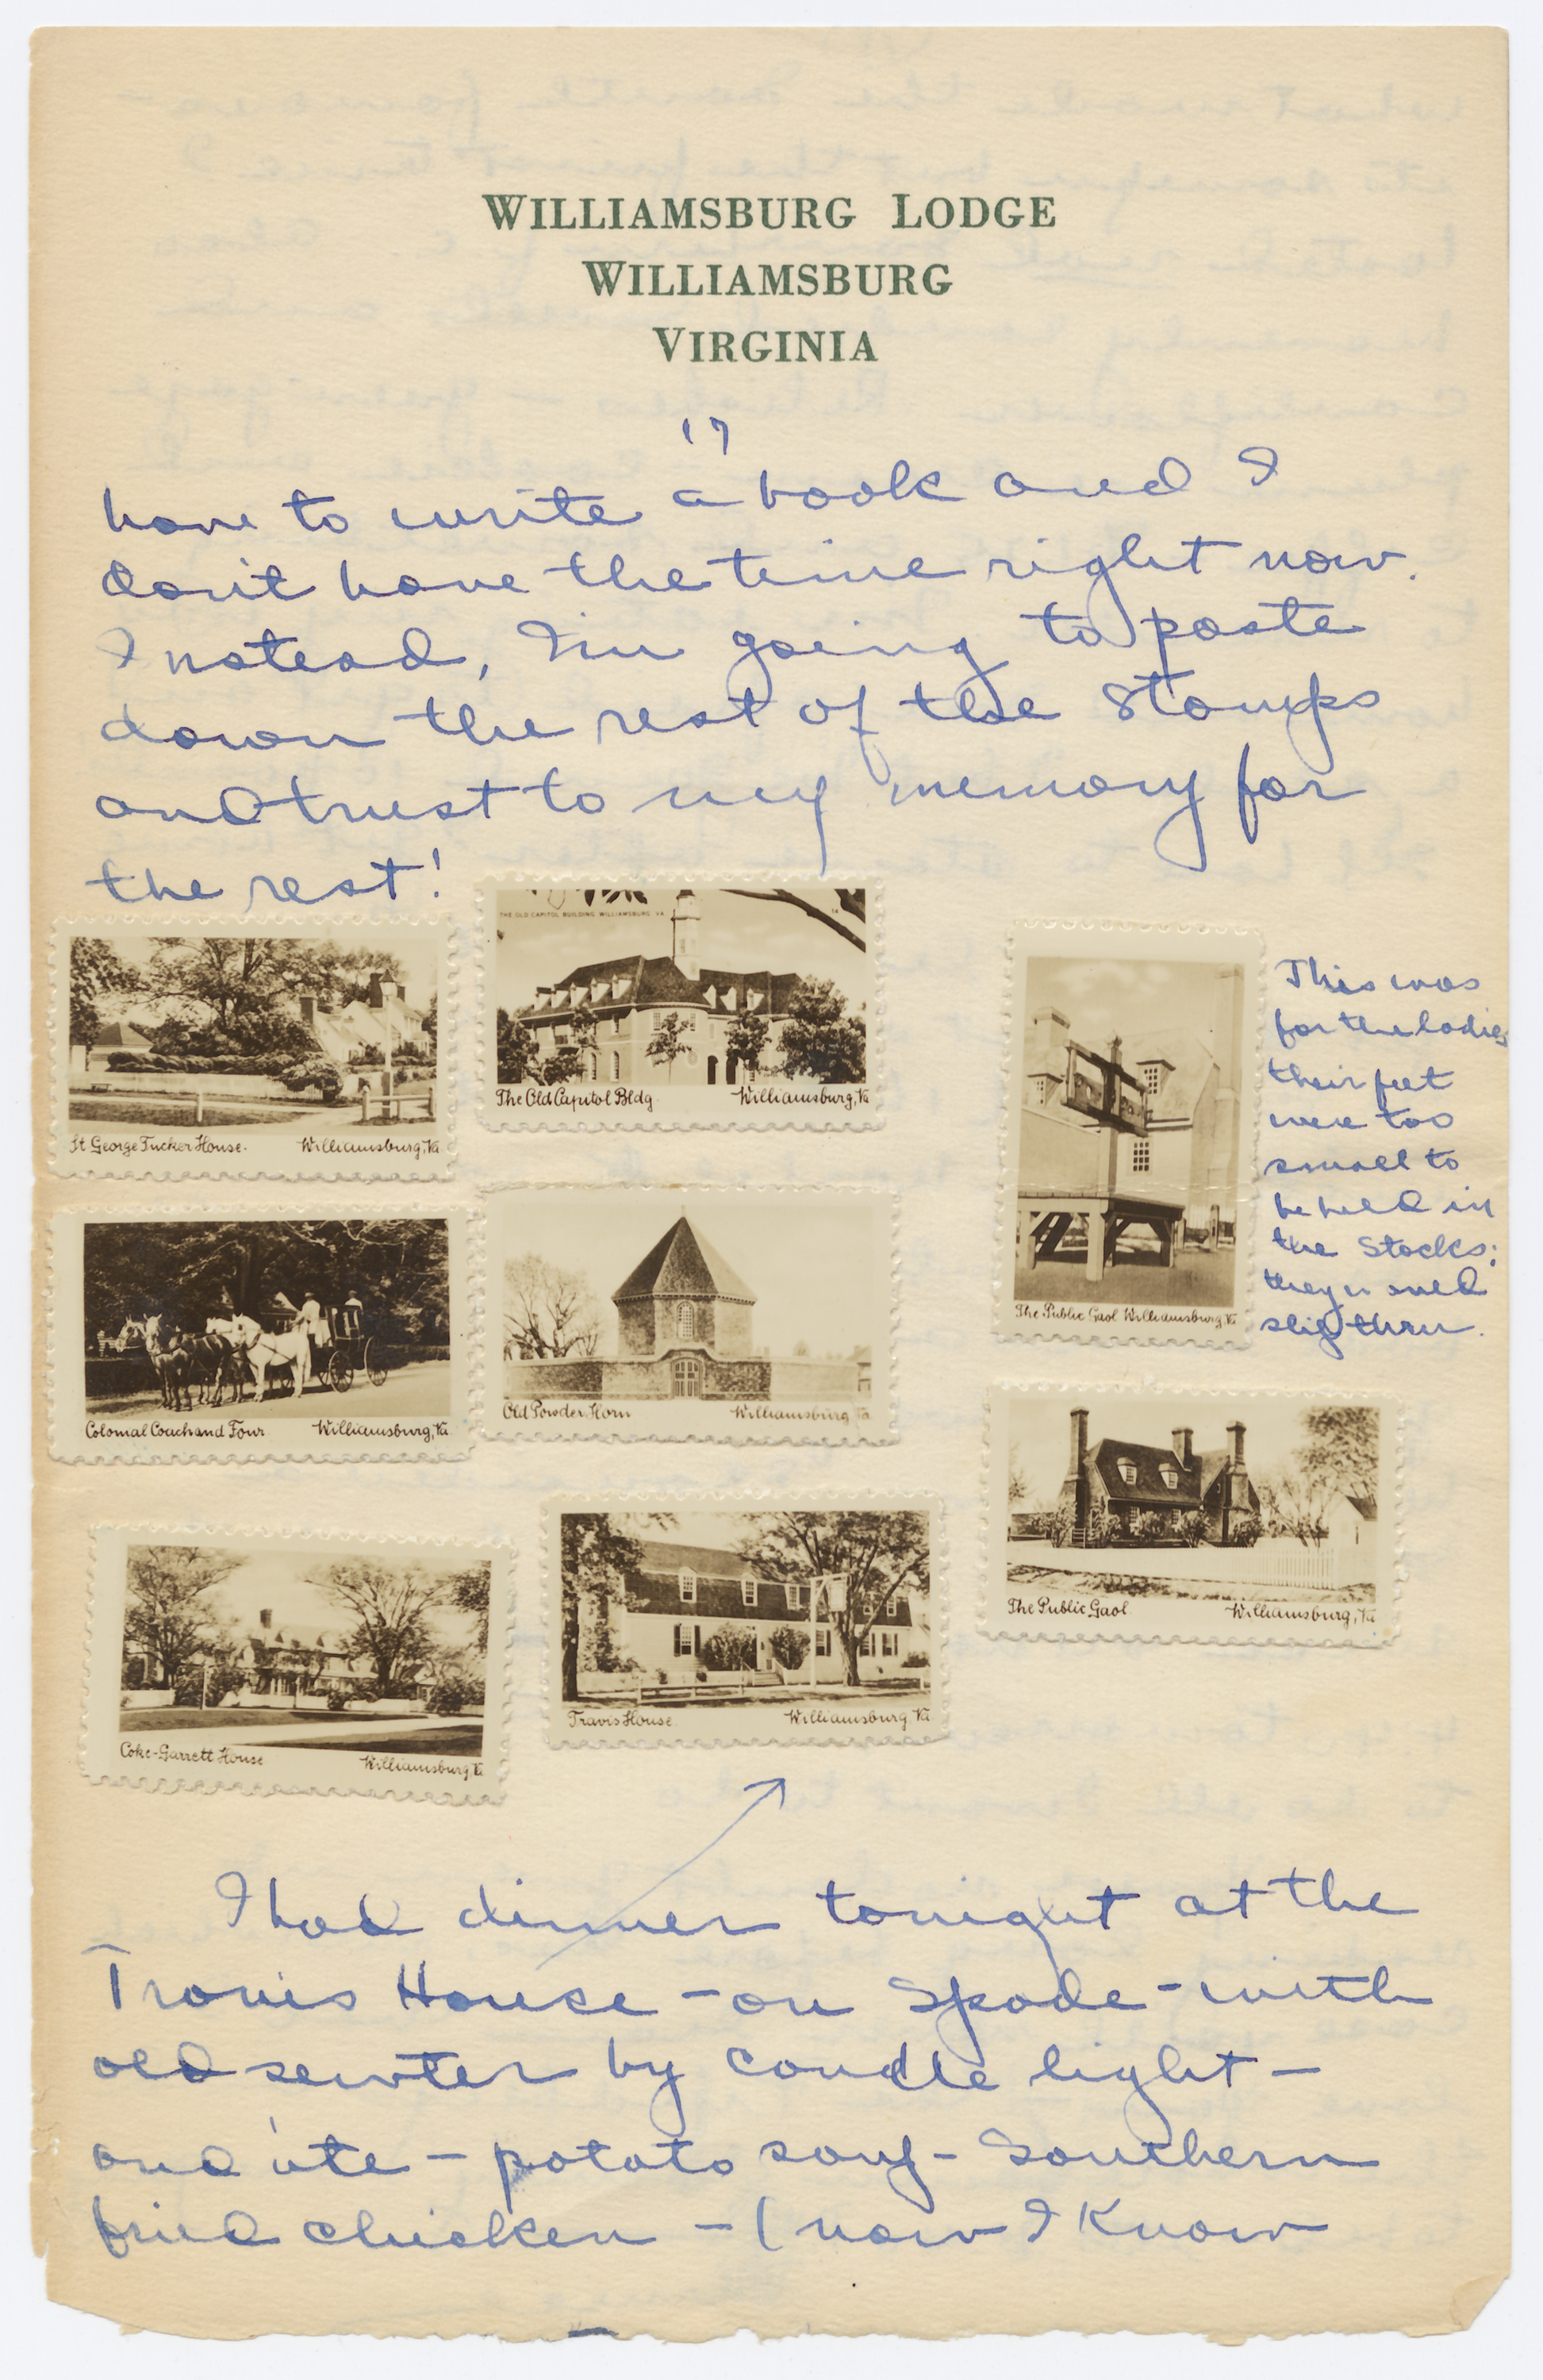 WILLIAMSBURG LODGE
WILLIAMSBURG
VIRGINIA
17
have to write a book and I
don't have the time right now.
Instead, I'm going to paste
down the rest of the Stamps
and trust to my memory for
the rest!
THE OLD CAPITOL BUILDING WILLIAMSBURG VA 14
St George Tucker House. Williamsburg, Va
The Old Capitol Bldg. Williamsburg, Va
This was
for the ladies
their feet
were too
small to
be held in
the Stocks;
they'd
slip thru.
The Public Gaol Williamsburg, Va
Colonial Coach and Four Williamsburg, Va
Old Powder Horn Williamsburg Va
The Public Gaol Williamsburg, Va
Coke-Garrett House Williamsburg, Va
Travis House Williamsburg, Va
I had dinner tonight at the
Travis House - on Spode - with
old pewter by candle light -
and ate - potato soup - Southern
fried chicken - (now I know